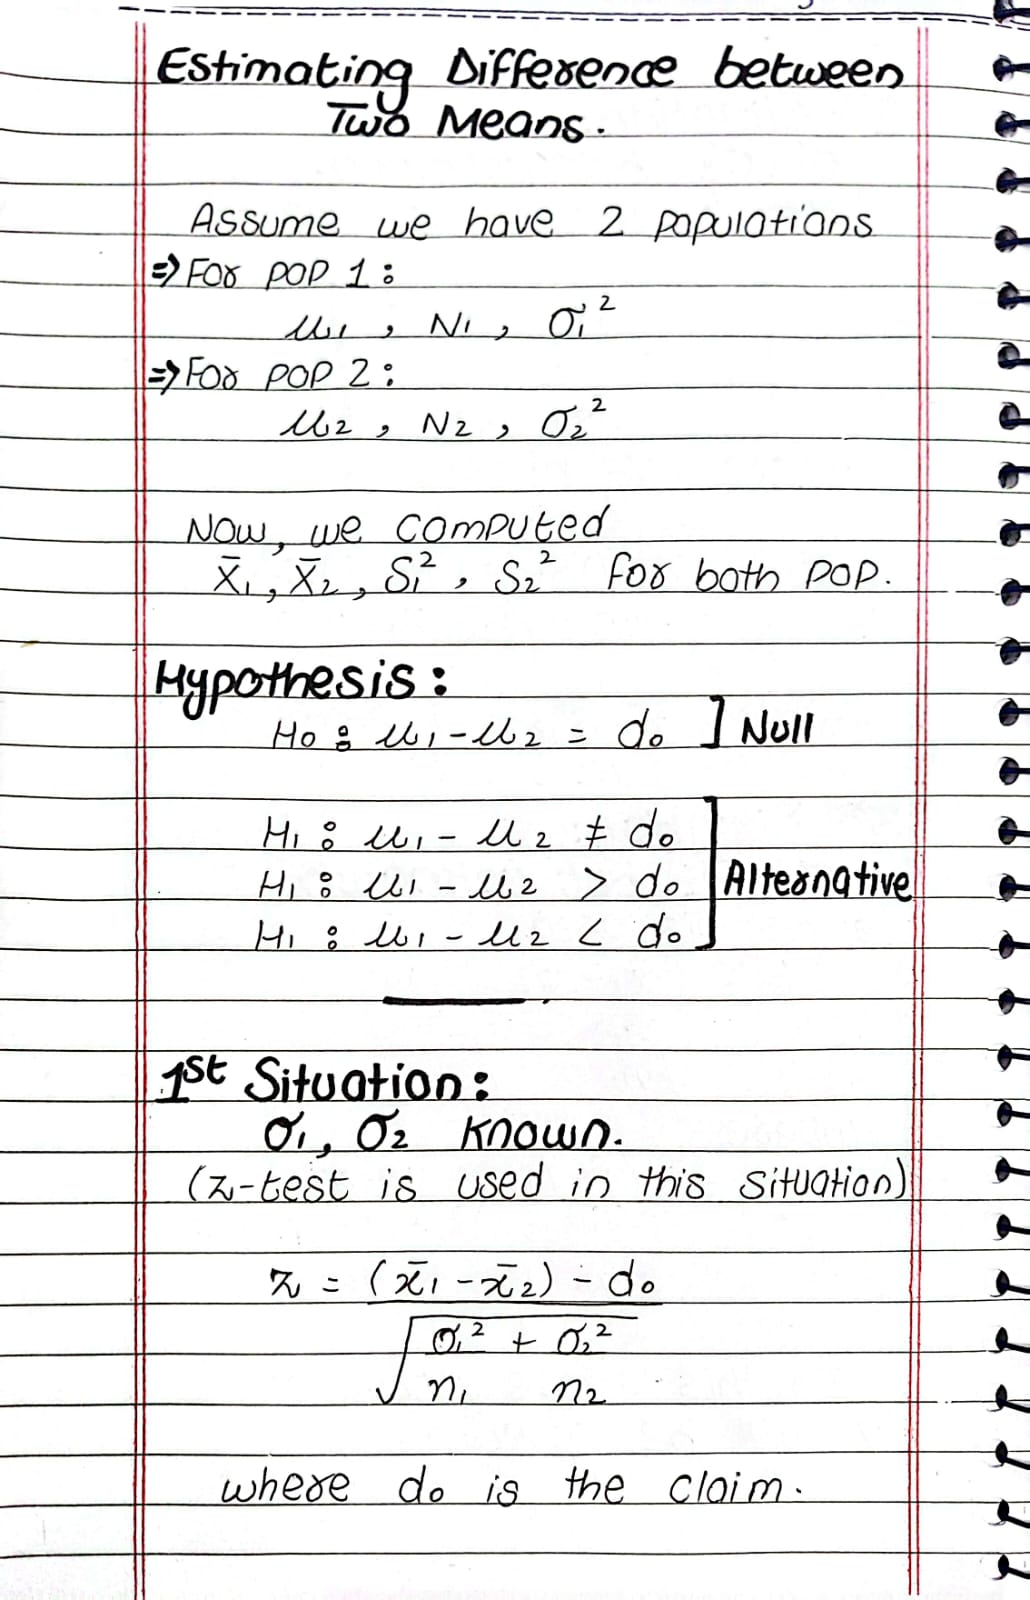 Estimating Difference between
Two Means.
Assume we have 2 populations
⇒ For POP 1:
μ₁, N₁, σ₁²
⇒ For POP 2:
μ₂, N₂, σ₂²
Now, we computed
X̄₁, X̄₂, S₁², S₂² for both POP.
Hypothesis:
H₀: μ₁ - μ₂ = d₀ ] Null
H₁: μ₁ - μ₂ ≠ d₀
H₁: μ₁ - μ₂ > d₀ ] Alternative
H₁: μ₁ - μ₂ < d₀
1st Situation:
σ₁, σ₂ known.
(z-test is used in this situation)
z = (x̄₁ - x̄₂) - d₀
√ σ₁² + σ₂²
n₁ n₂
where d₀ is the claim.